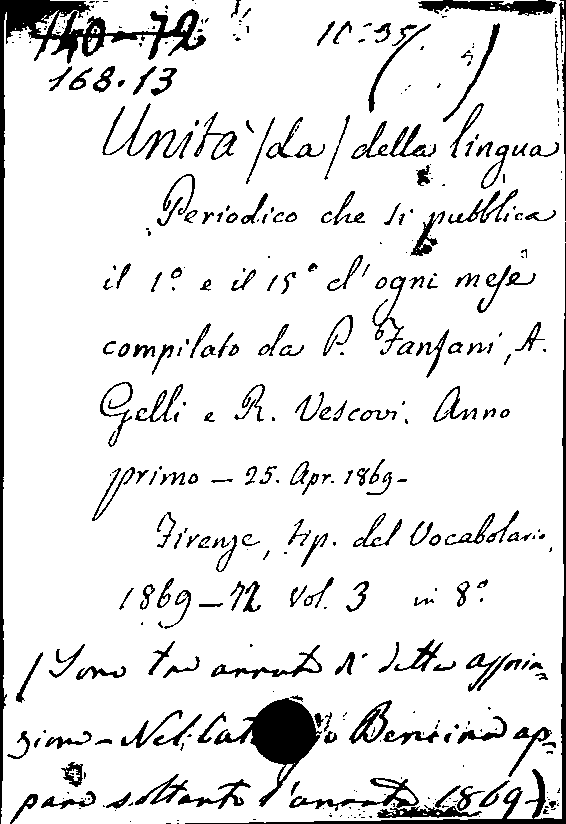 140-72
10-35
168.13
Unità /da/ della lingua
Periodico che si pubblica
il 1º e il 15º d'ogni mese
compilato da P. Fanfani, A.
Gelli e R. Vescovi. Anno
primo — 25. Apr. 1869-
Firenze, tip. del Vocabolario,
1869-72 Vol. 3 in 8º
(Sono tre annate di detta
- Nel Cat Bencina ap-
pare soltanto l'annata 1869).